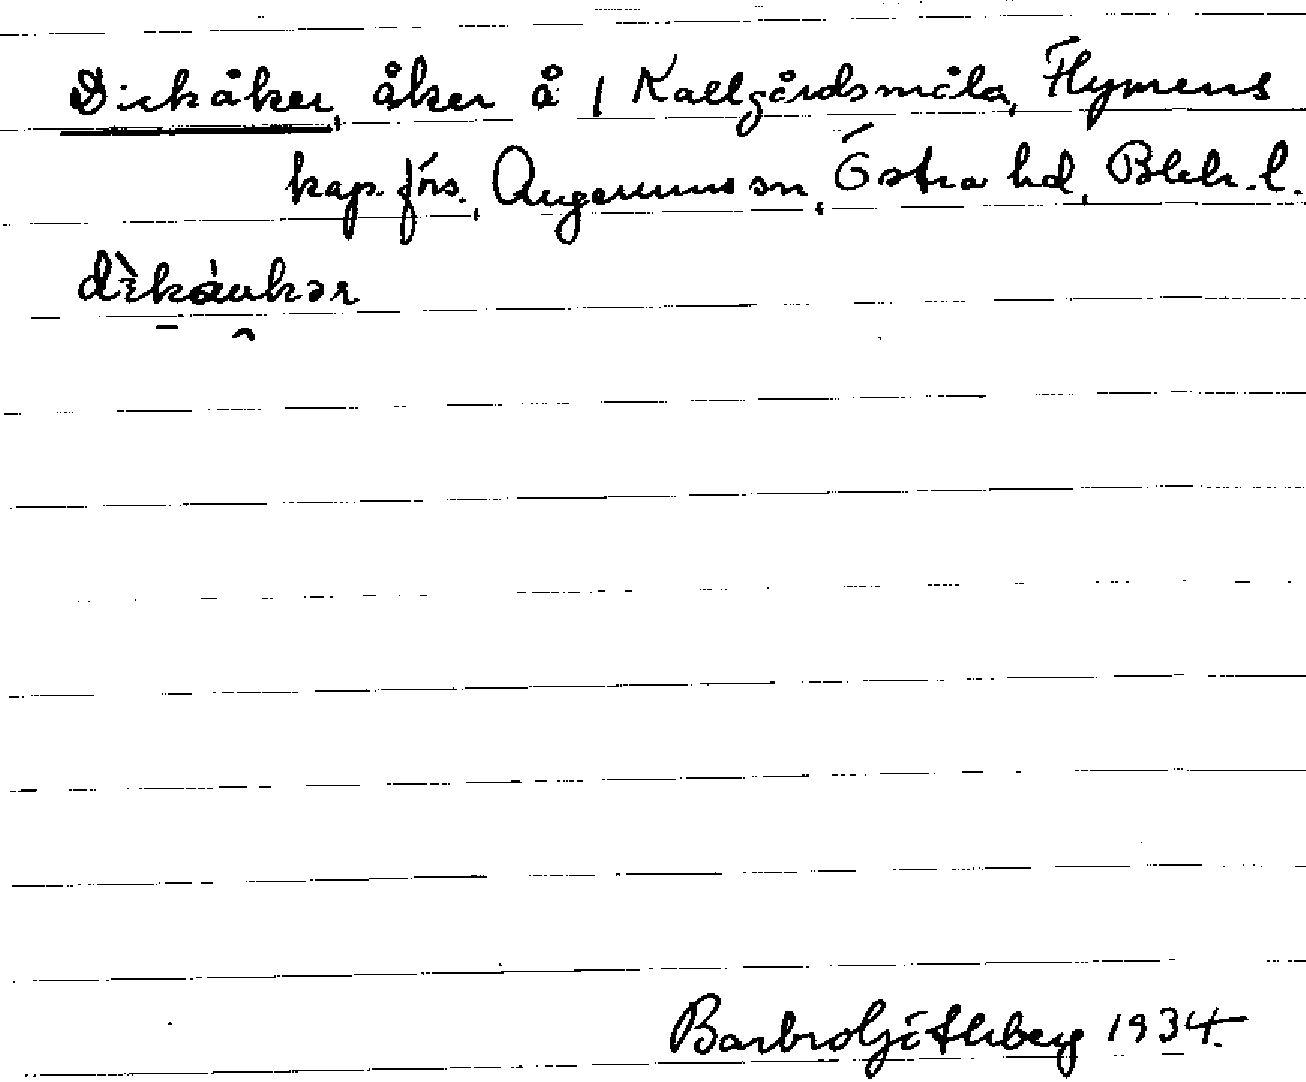 Dickåker, åker å 1 Kallgårdsmåla, Flymens
kap.förs., Augerums sn, Östra hd, Blek. l.
dìkåukər
Barbro Götherberg 1934.